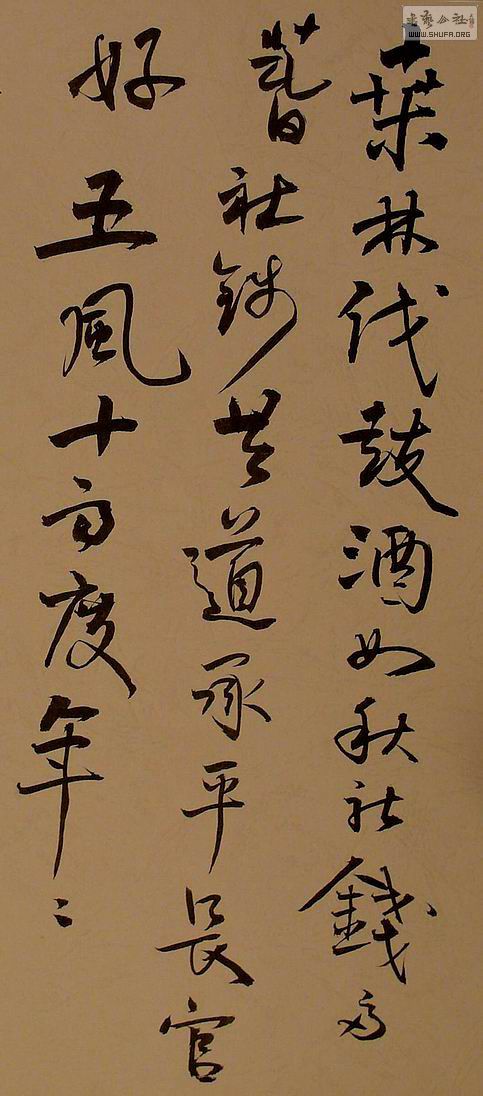 桑林伐鼓酒如秋社錢多
萅社錢共道承平長官
好五風十雨度年々
書藝公社
WWW.SHUFA.ORG